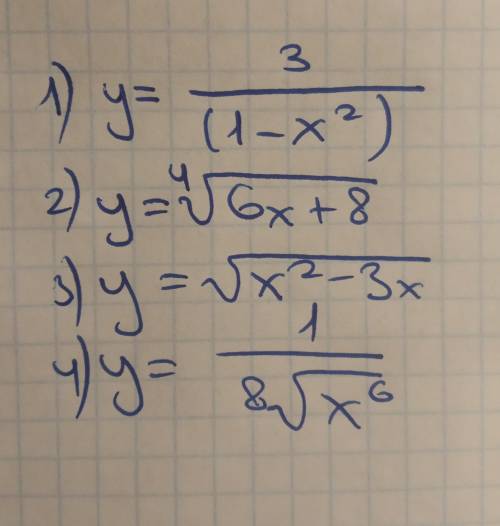 1) y = 3 / (1 - x²)
2) y = ⁴√(6x + 8)
3) y = √(x² - 3x)
4) y = 1 / ⁸√(x⁶)